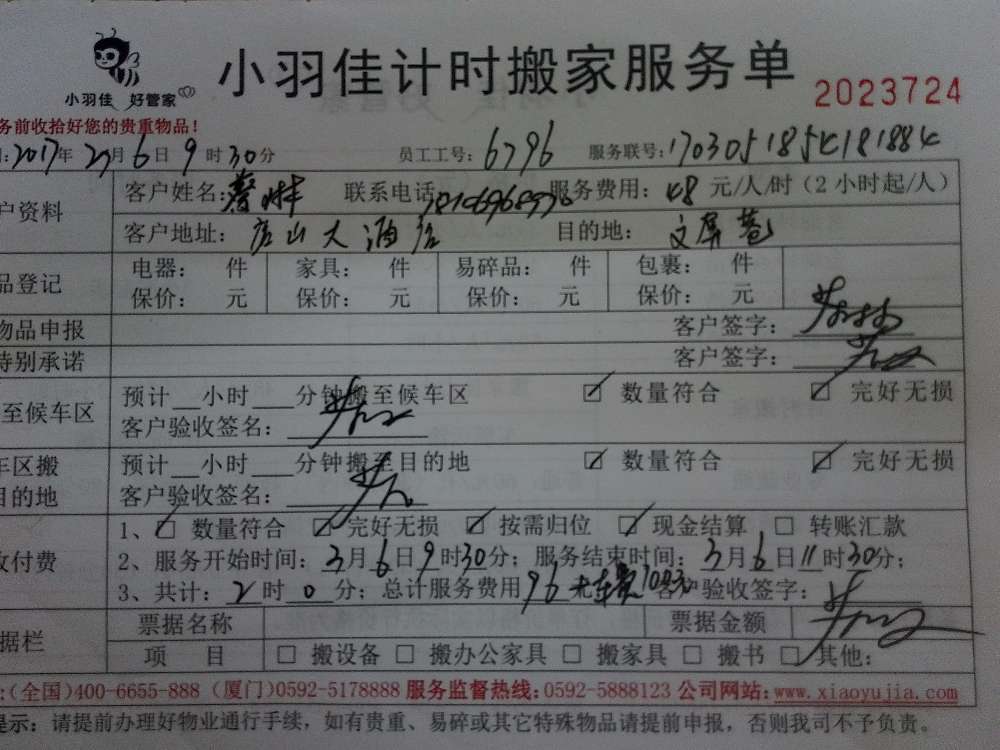 小羽佳 好管家
小羽佳计时搬家服务单
2023724
务前收拾好您的贵重物品!
2017年 月6日9时30分 员工工号:6796 服务联号:17030518541818
户资料 客户姓名:蔡 联系电话 服务费用:48元/人/时(2小时起/人)
客户地址:庐山大酒店 目的地:文屏巷
品登记 电器: 件 家具: 件 易碎品: 件 包裹: 件
保价: 元 保价: 元 保价: 元 保价: 元
物品申报 客户签字:
特别承诺 客户签字:
至候车区 预计__小时___分钟搬至候车区 ☑ 数量符合 ☑ 完好无损
客户验收签名:
车区搬 预计__小时___分钟搬至目的地 ☑ 数量符合 ☑ 完好无损
目的地 客户验收签名:
1、☑ 数量符合 ☑ 完好无损 ☑ 按需归位 ☑ 现金结算 □ 转账汇款
收付费 2、服务开始时间:3月6日9时30分;服务结束时间:3月6日11时30分;
3、共计:2时0分;总计服务费用96元车费 客户验收签字:
据栏 票据名称 票据金额
项 目 □ 搬设备 □ 搬办公家具 □ 搬家具 □ 搬书 □ 其他:
:(全国)400-6655-888 (厦门)0592-5178888 服务监督热线:0592-5888123 公司网站:www.xiaoyujia.com
提示:请提前办理好物业通行手续,如有贵重、易碎或其它特殊物品请提前申报,否则我司不予负责。